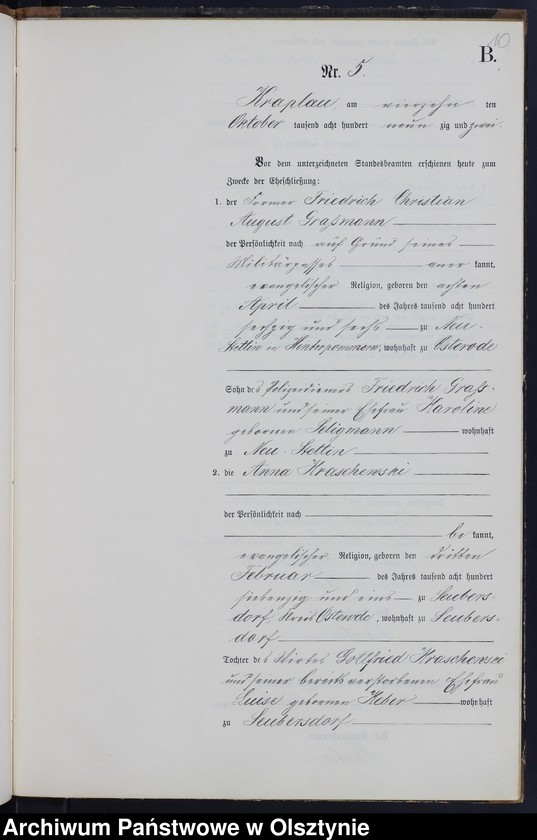 10
B.
Nr. 5.
Kraplau, am vierzehn ten
Oktober tausend acht hundert neun zig und zwei.
Vor dem unterzeichneten Standesbeamten erschienen heute zum
Zwecke der Eheschließung:
1. der Former Friedrich Christian
August Graßmann
der Persönlichkeit nach auf Grund seines
Militärpasses aner kannt,
evangelischer Religion, geboren den achten
April des Jahres tausend acht hundert
sechzig und sechs zu Neu-
Stettin in Hinterpommern, wohnhaft zu Osterode
Sohn des Polizeidieners Friedrich Graß-
mann und seiner Ehefrau Karoline
geborenen Seligmann wohnhaft
zu Neu-Stettin
2. die Anna Kraschewski
der Persönlichkeit nach
be kannt,
evangelischer Religion, geboren den dritten
Februar des Jahres tausend acht hundert
siebenzig und eins zu Seubers-
dorf, Kreis Osterode, wohnhaft zu Seubers-
dorf
Tochter des Wirtes Gottfried Kraschewski
und seiner bereits verstorbenen Ehefrau
Luise geborenen Heber wohnhaft
zu Seubersdorf
Archiwum Państwowe w Olsztynie